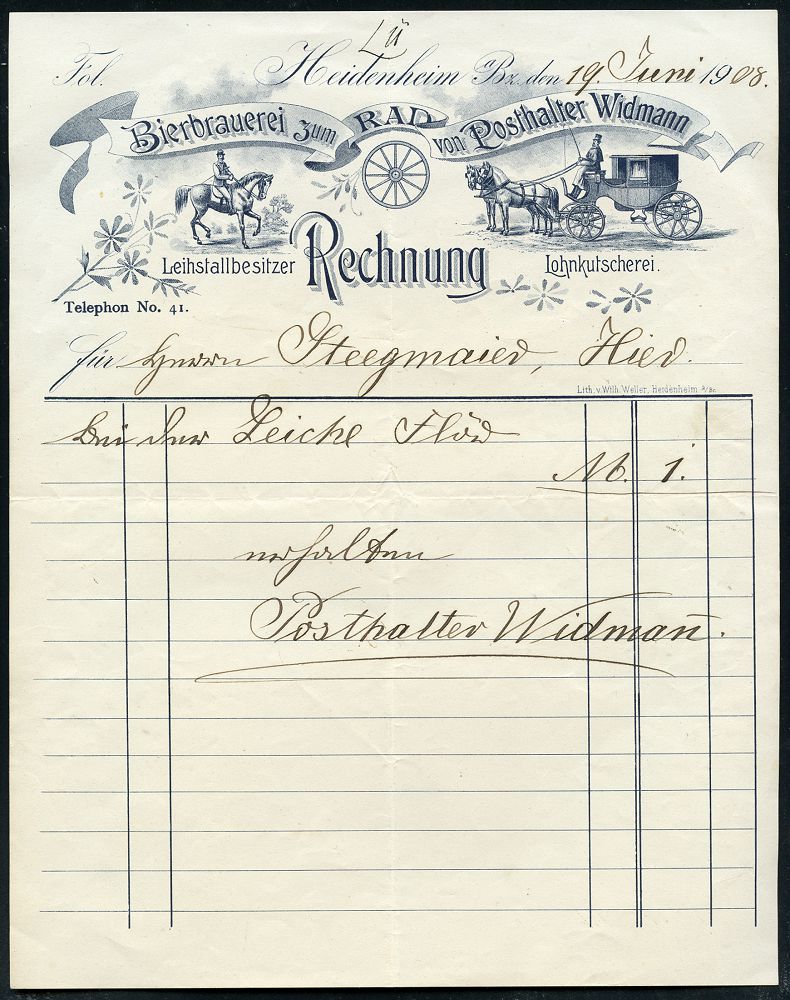 Lü
Fol. Heidenheim a/Bz. den 19. Juni 1908.
Bierbrauerei zum RAD von Posthalter Widmann
Leihstallbesitzer Rechnung Lohnkutscherei.
Telephon No. 41.
für Herrn Steegmaier, Hier.
Lith. v. Wilh. Weller, Heidenheim a/Br.
bei der Leiche Flör
M. 1.
erhalten
Posthalter Widman̄.